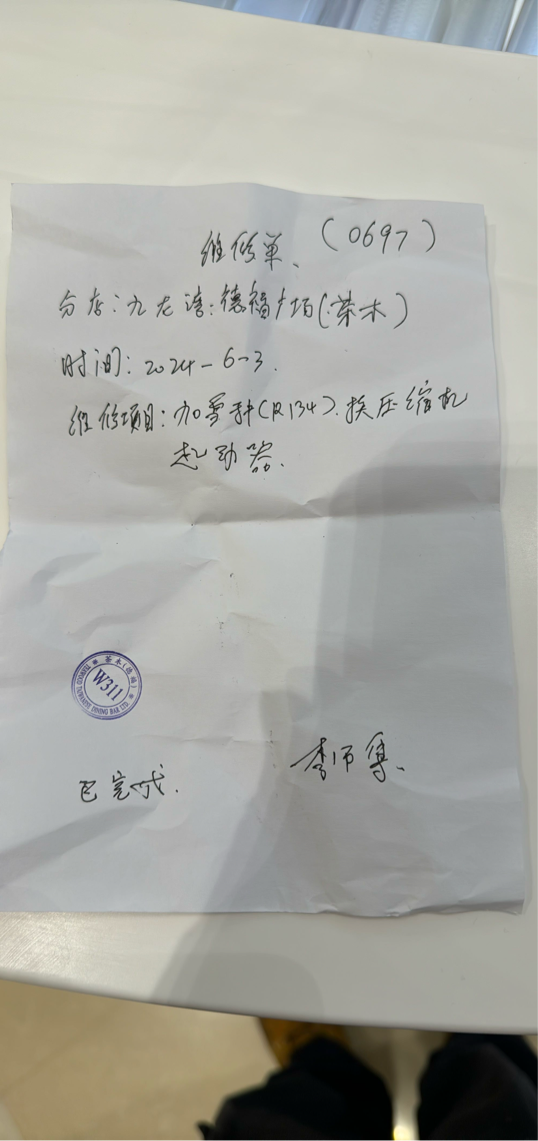 维修单、(0697)
分店:九龙湾:德福广场(茶木)
时间:2024-6-3.
维修项目:加雪种(R134).换压缩机
起动器.
茶木(德福)
W311
DINING BAR LTD.
已完成.
李师傅、